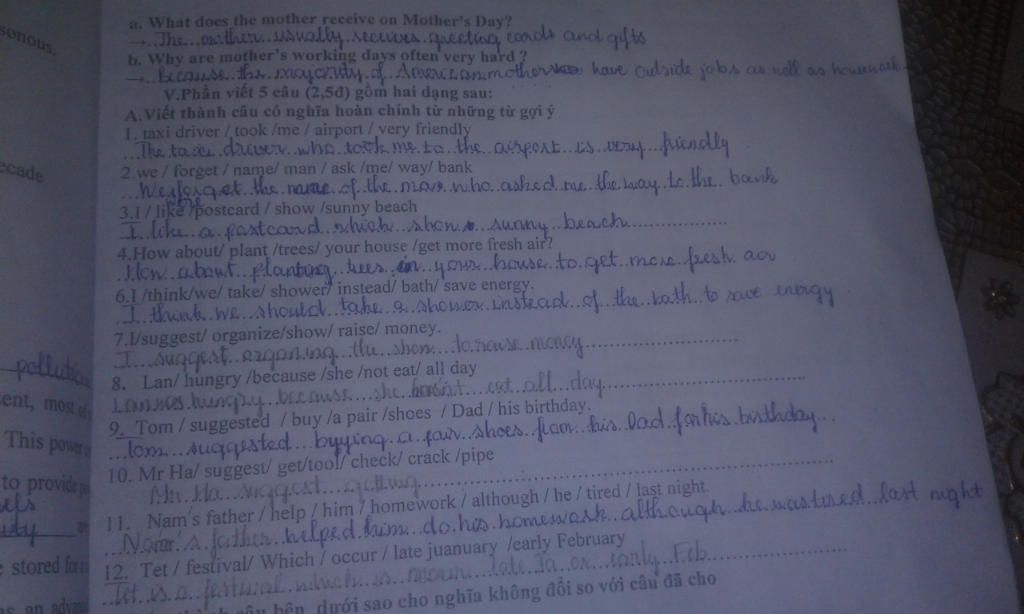 a. What does the mother receive on Mother's Day?
sonous.
→ The mother usually receives greeting cards and gifts
b. Why are mother's working days often very hard ?
→ Because the majority of American mother have outside jobs as well as
V.Phần viết 5 câu (2,5đ) gồm hai dạng sau:
A.Viết thành câu có nghĩa hoàn chỉnh từ những từ gợi ý
1. taxi driver / took /me / airport / very friendly
The taxi driver who took me to the airport is very friendly
ecade
2.we / forget / name/ man / ask /me/ way/ bank
We forget the name of the man who asked me the way to the bank
3.I / like /postcard / show /sunny beach
I like a postcard which show sunny beach
4.How about/ plant /trees/ your house /get more fresh air?
How about planting trees in your house to get more fresh
6.I /think/we/ take/ shower/ instead/ bath/ save energy.
I think we should take a shower instead of the bath to save energy
7.I/suggest/ organize/show/ raise/ money.
I suggest the show to raise money
pollution
8. Lan/ hungry /because /she /not eat/ all day
Lan was hungry because she eat all day
sent, most of
9. Tom / suggested / buy /a pair /shoes / Dad / his birthday.
Tom suggested byying a pair shoes his Dad for his birthday
This power
10. Mr Ha/ suggest/ get/tool/ check/ crack /pipe
Mr. Ha suggest getting
to provide
11. Nam's father / help / him / homework / although / he / tired / last night.
Nam's father helped him do his homework although he was tired last night
12. Tet / festival/ Which / occur / late juanuary /early February
Tet is a festival which is late Ja or early Feb
e stored
câu bên dưới sao cho nghĩa không đổi so với câu đã cho
as an